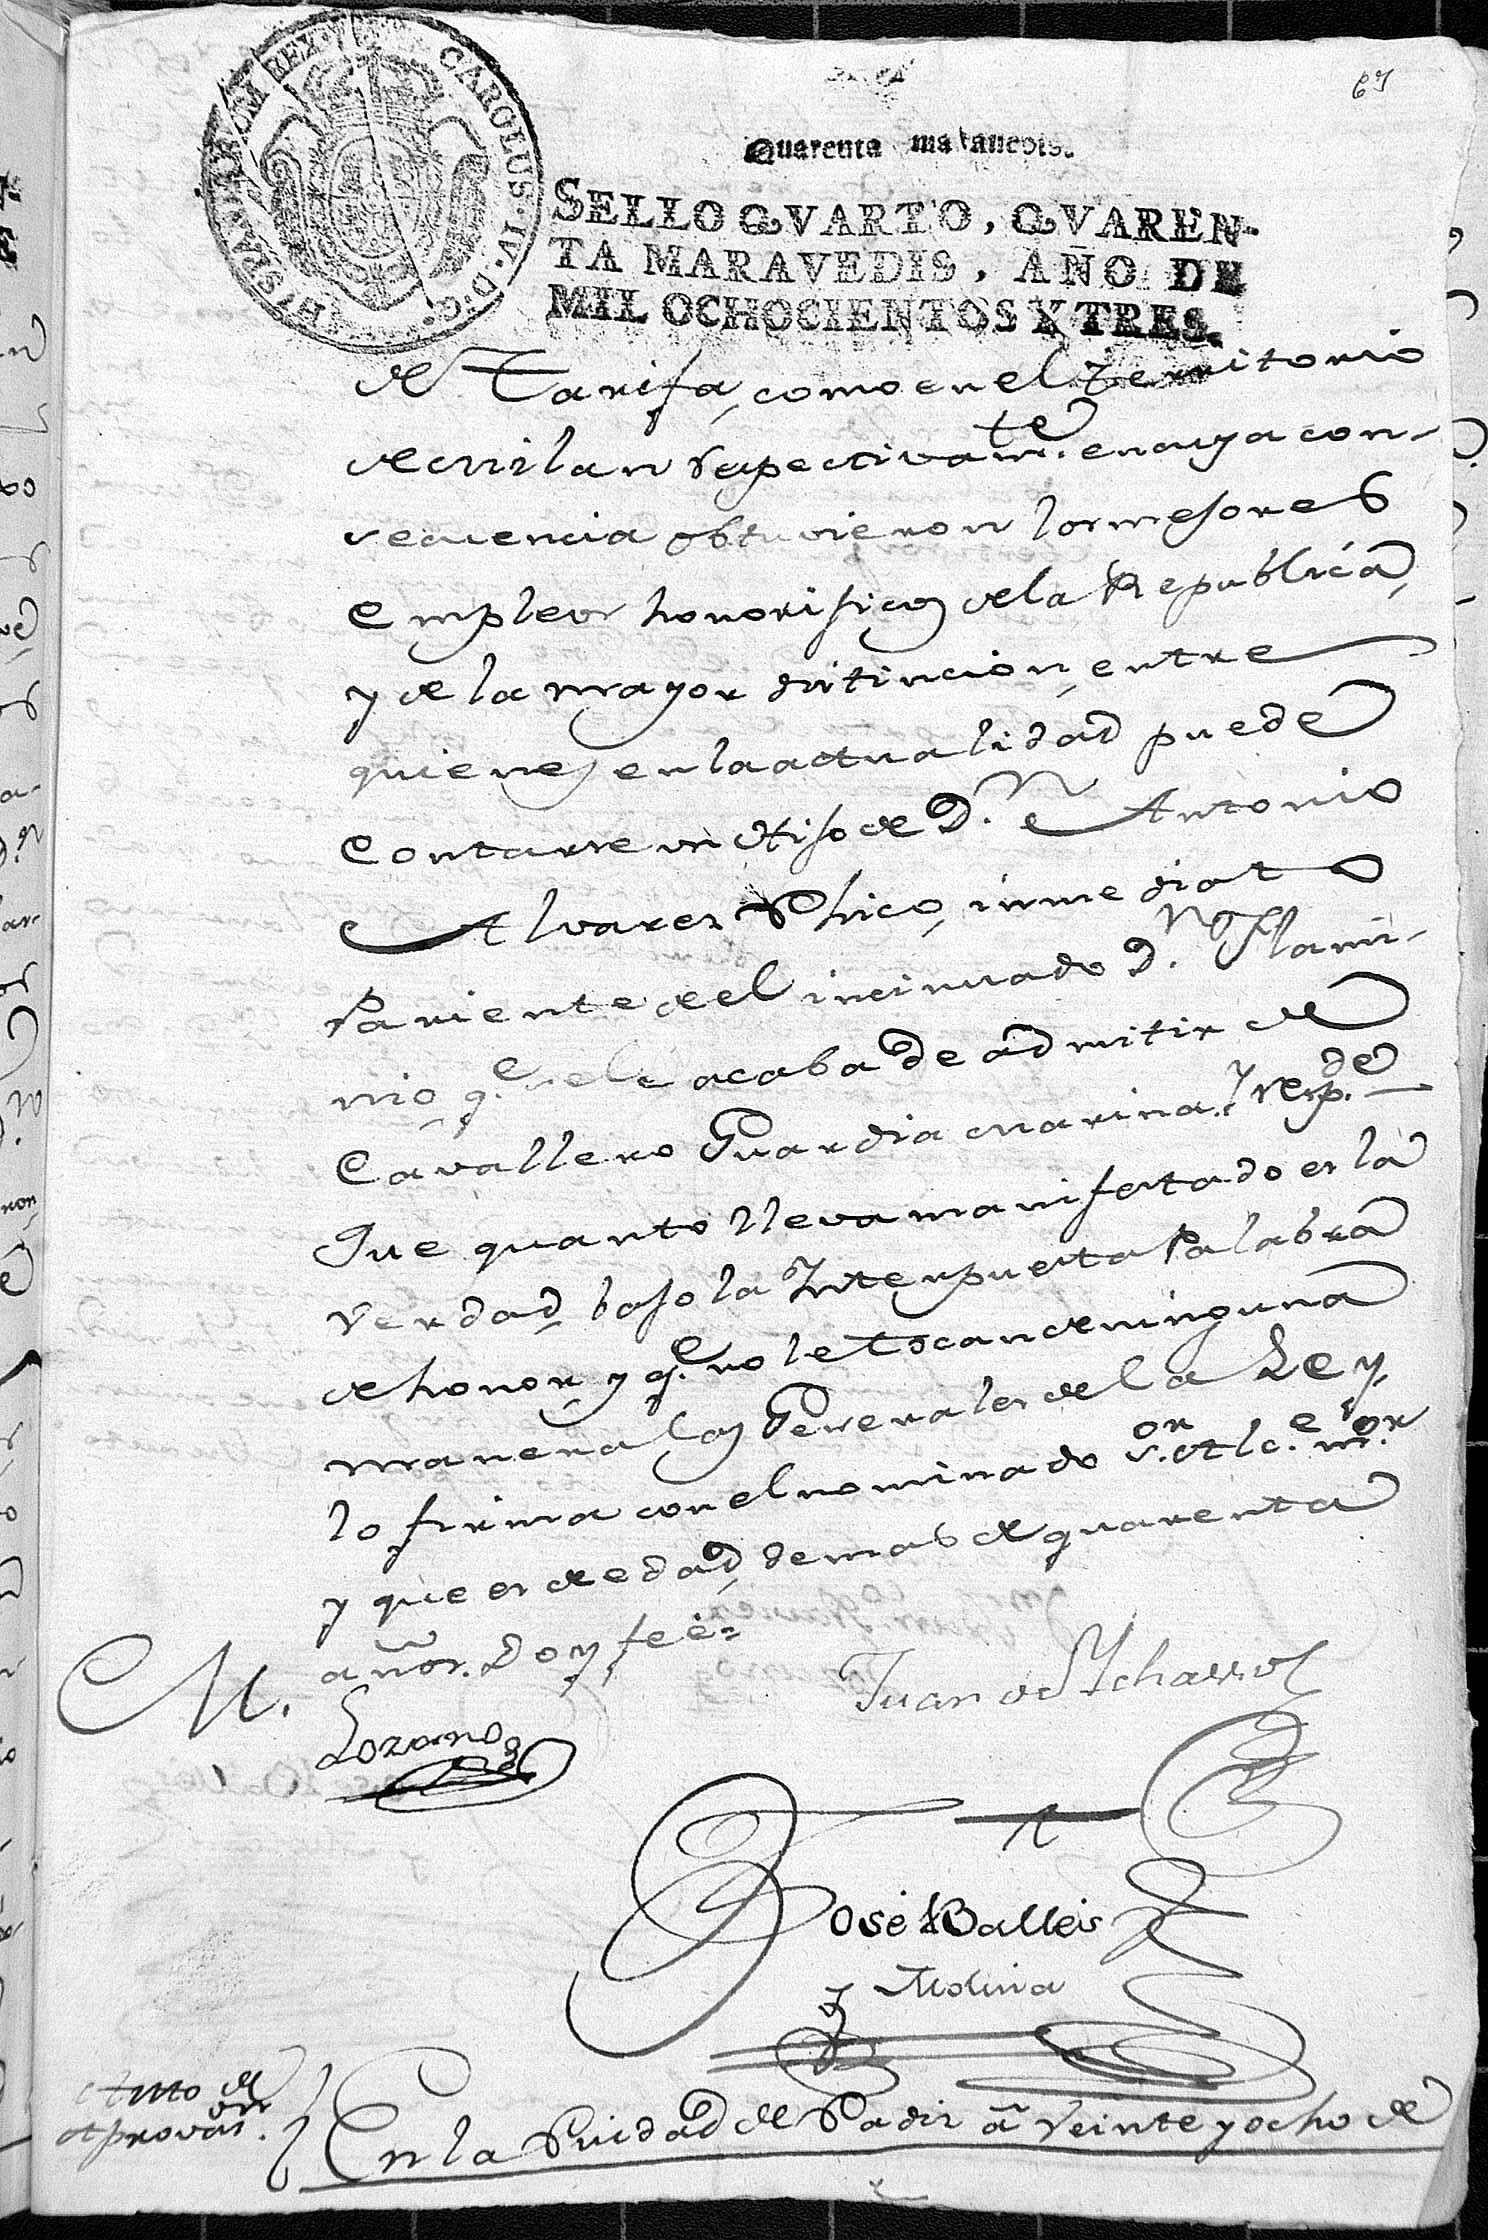 67
CAROLUS · IV · D · G · HISPANIARUM REX
Quarenta maravedis.
SELLO QVARTO, QVAREN-
TA MARAVEDIS, AÑO DE
MIL OCHOCIENTOS Y TRES.
de Tarifa, como en el Territorio
de Milan respectivamte. en cuya con-
secuencia obtuvieron los mejores
empleos honorificos de la Republica,
y de la mayor distincion, entre
quienes en la actualidad puede
contarse un Hijo de D.n Antonio
Alvarez Chico, inmediato
Pariente de el incinuado D.n Flami-
nio q.e se le acaba de admitir de
Cavallero Guardia Marina. Y resp.de
Que quanto lleva manifestado es la
verdad bajo la Interpuesta Palabra
de honor y q.e no le tocan de ninguna
manera las Generales de la Ley,
lo firma con el nominado S.or Alc.e m.or
y que es de edad de mas de quarenta
años. Doy fee =
M.
Lozano
Juan de
José Balleis
y Molina
Auto de
Aprovas.on
En la Ciudad de Cadiz à veinte y ocho de